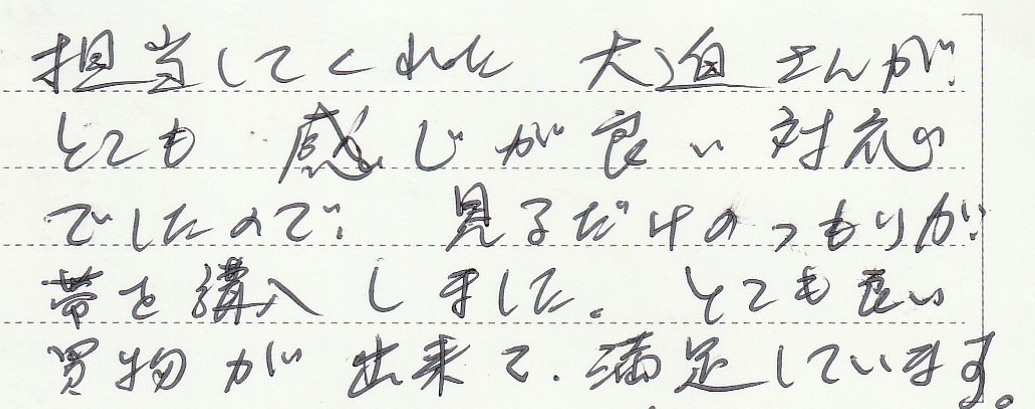 担当してくれた 大迫さんが
とても 感じが良い対応
でしたので、見るだけのつもりが
帯を購入しました。とても良い
買物が出来て、満足しています。